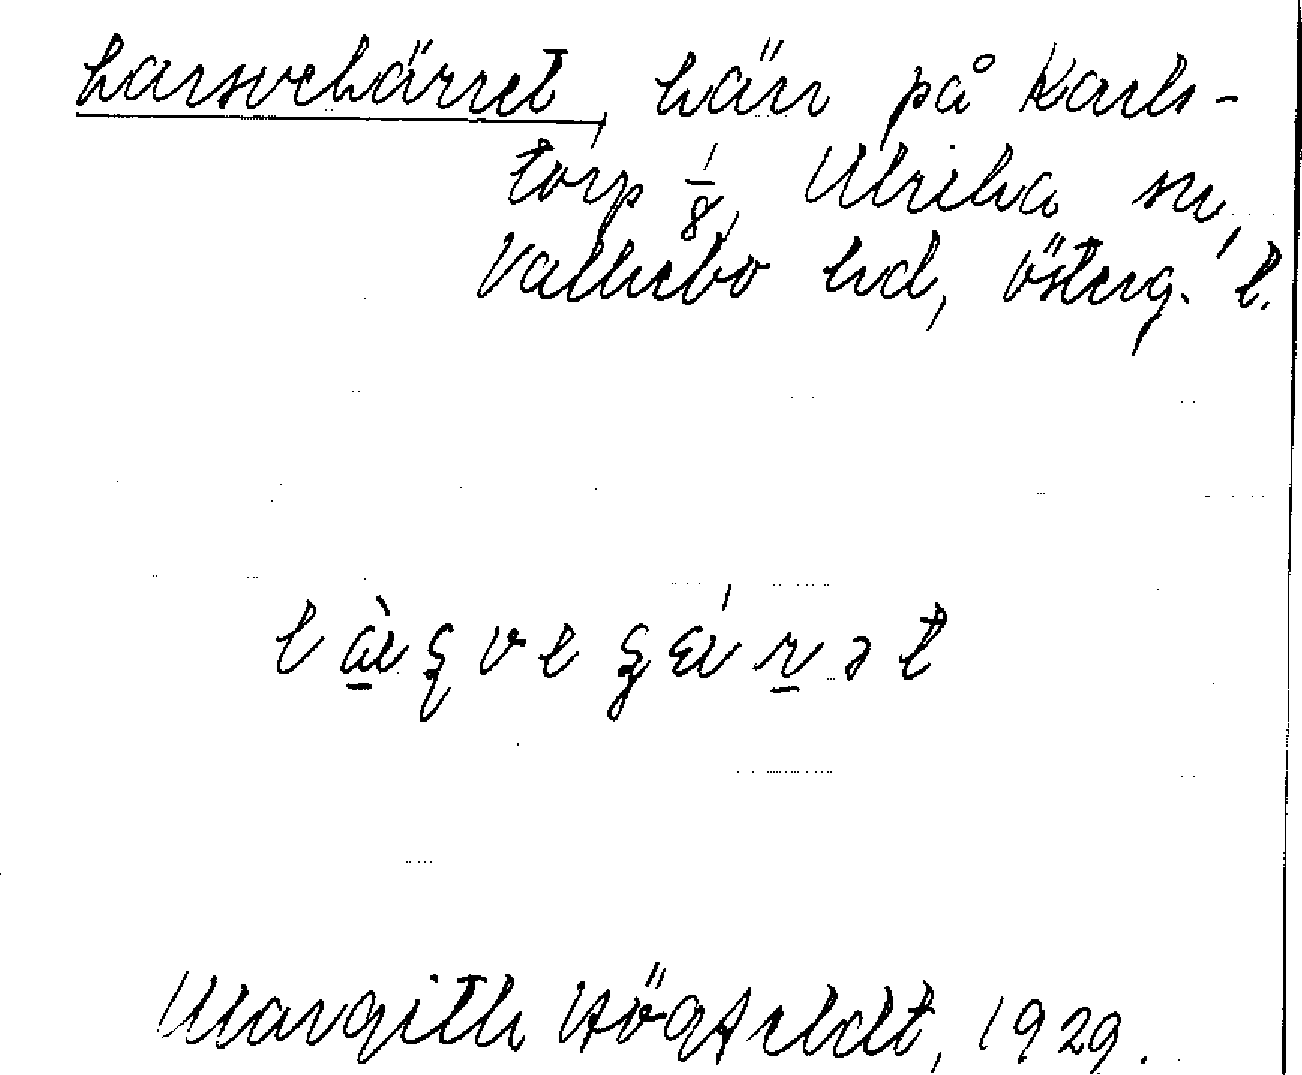 Larsvekärret, kärr på Karls-
torp 1/8, Ulrika sn,
Valkebo hd, Österg. l.
Margith Högfeldt, 1929.